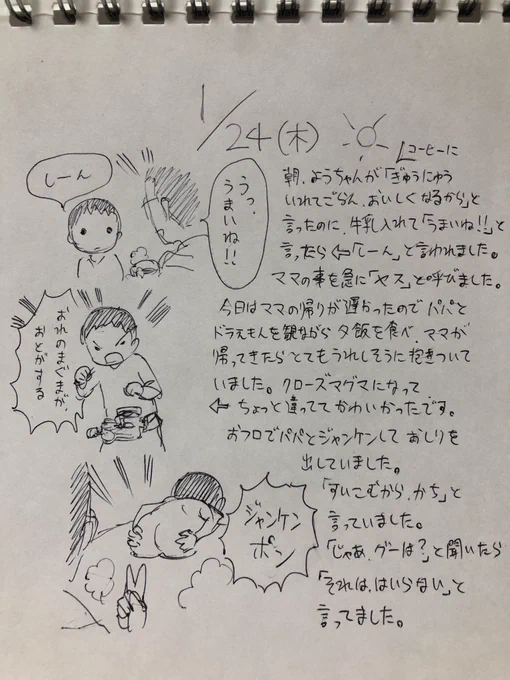 1/24(木)
コーヒーに
朝、ようちゃんが「ぎゅうにゅう
いれてごらん、おいしくなるから」と
言ったのに、牛乳入れて「うまいね!!」と
言ったら⇦「しーん」と言われました。
ママの事を急に「ヤス」と呼びました。
しーん
うっ、
うまいね!!
今日はママの帰りが遅かったのでパパと
ドラえもんを観ながら夕飯を食べ、ママが
帰ってきたらとてもうれしそうに抱きついて
いました。クローズマグマになって
⇦ちょっと違っててかわいかったです。
おれのまぐまが、
おとがする
おフロでパパとジャンケンしておしりを
出していました。
「すいこむから、かち」と
言っていました。
「じゃあ、グーは?」と聞いたら
「それは、はいらない」と
言ってました。
ジャンケン
ポン